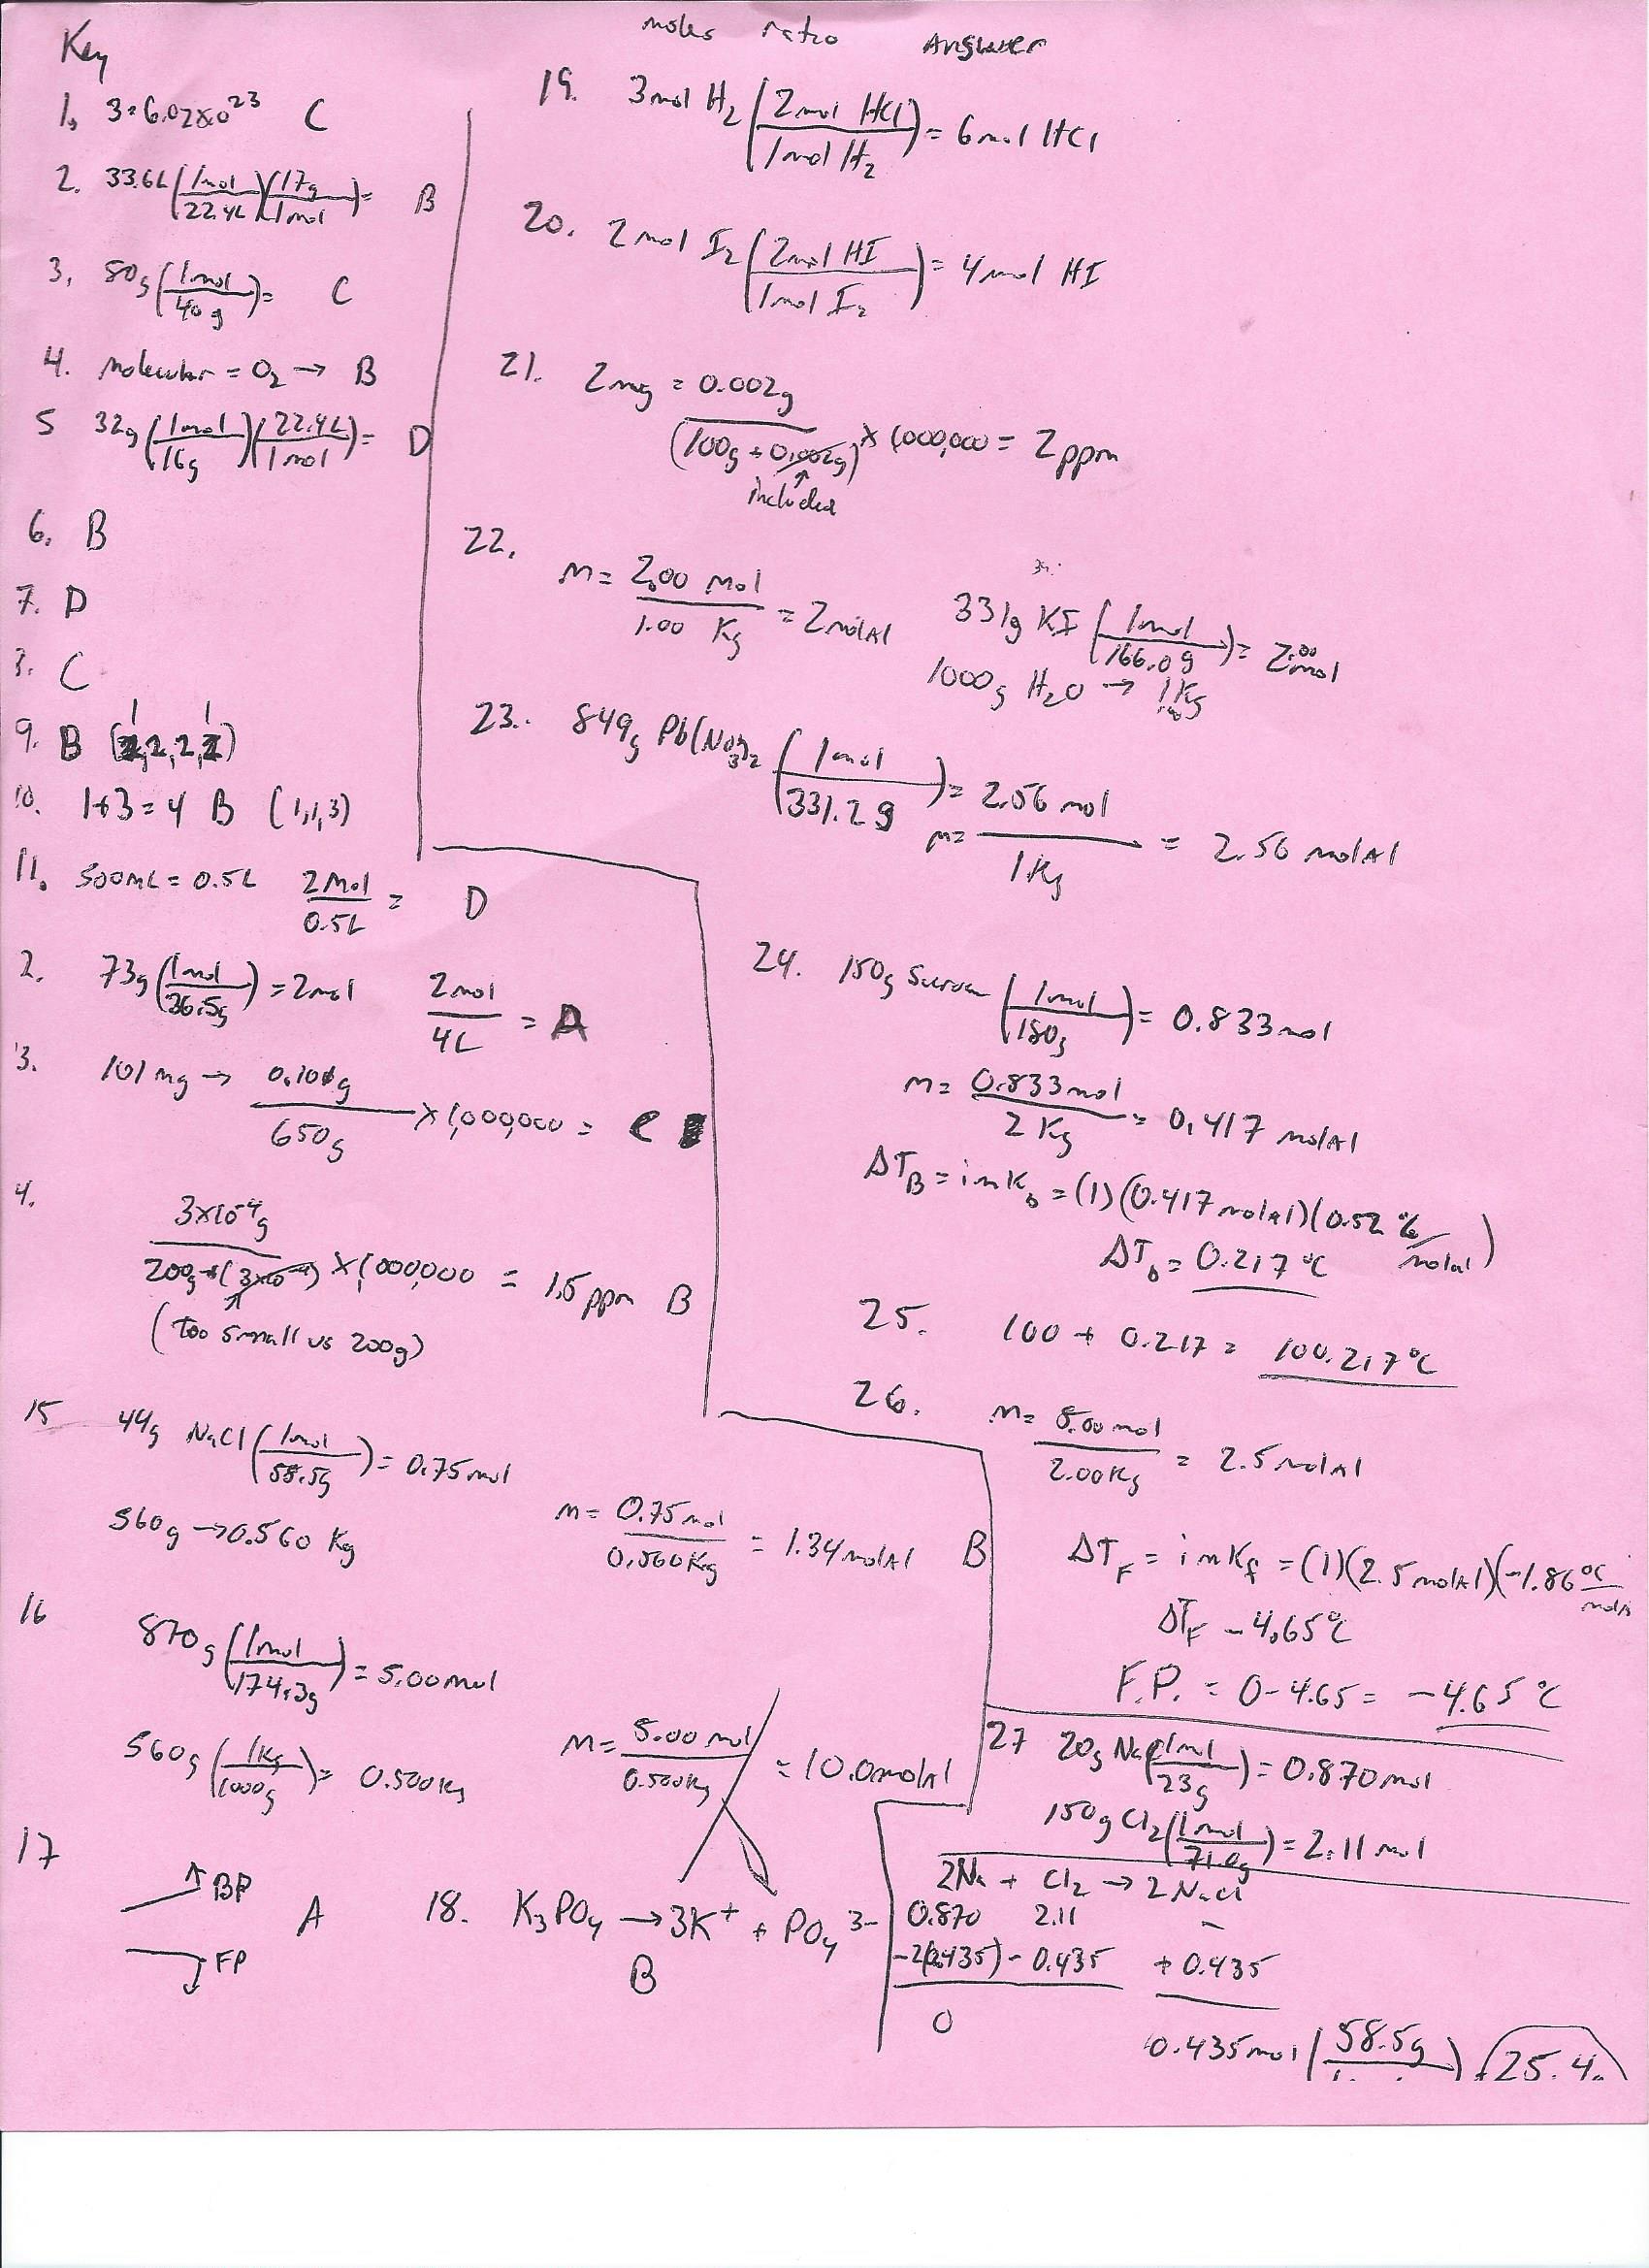 Key
1. 3 = 6.02x10^23 C
2. 33.6L (1mol / 22.4L)(17g / 1mol) = B
3. 80g (1mol / 40g) = C
4. molecular = O2 → B
5 32g (1mol / 16g)(22.4L / 1mol) = D
6. B
7. D
C
9. B (1, 2, 2, 1)
10. 1+3=4 B (1,1,3)
11. 500mL = 0.5L 2mol / 0.5L = D
2. 73g (1mol / 36.5g) = 2mol 2mol / 4L = A
3. 101mg → 0.101g / 650g x 1,000,000 = C
4. 3x10^-4g / 200g + (3x10^-4) x 1,000,000 = 1.5ppm B
(too small vs 200g)
15 44g NaCl (1mol / 58.5g) = 0.75mol
560g → 0.560 Kg m = 0.75mol / 0.560Kg = 1.34molAl B
16 870g (1mol / 174.3g) = 5.00mol
560g (1Kg / 1000g) = 0.500Kg m = 5.00mol / 0.500Kg = 10.0molAl
17 ↑BP
A
FP
18. K3PO4 → 3K+ + PO4 3-
B
moles ratio Answer
19. 3mol H2 (2mol HCl / 1mol H2) = 6mol HCl
20. 2mol I2 (2mol HI / 1mol I2) = 4mol HI
21. 2mg = 0.002g / (100g + 0.002g) x 1,000,000 = 2ppm
included
22. m = 2.00 mol / 1.00 Kg = 2molAl
331g KI (1mol / 166.0g) = 2.00mol
1000g H2O → 1Kg
23. 849g Pb(NO3)2 (1mol / 331.2g) = 2.56 mol
m = / 1Kg = 2.56 molAl
24. 150g Sucrose (1mol / 180g) = 0.833mol
m = 0.833mol / 2Kg = 0.417 molAl
ΔTB = imKb = (1)(0.417molal)(0.52 °C/molal)
ΔTb = 0.217°C
25. 100 + 0.217 = 100.217°C
26. m = 5.00mol / 2.00Kg = 2.5molAl
ΔTF = imKf = (1)(2.5molAl)(-1.86 °C
ΔTF -4.65°C
F.P. = 0-4.65 = -4.65°C
27 20g Na (1mol / 23g) = 0.870mol
150g Cl2 (1mol / 71.0g) = 2.11mol
2Na + Cl2 → 2NaCl
0.870 2.11 -
-2(0.435) - 0.435 + 0.435
0
0.435mol (58.5g 25.4